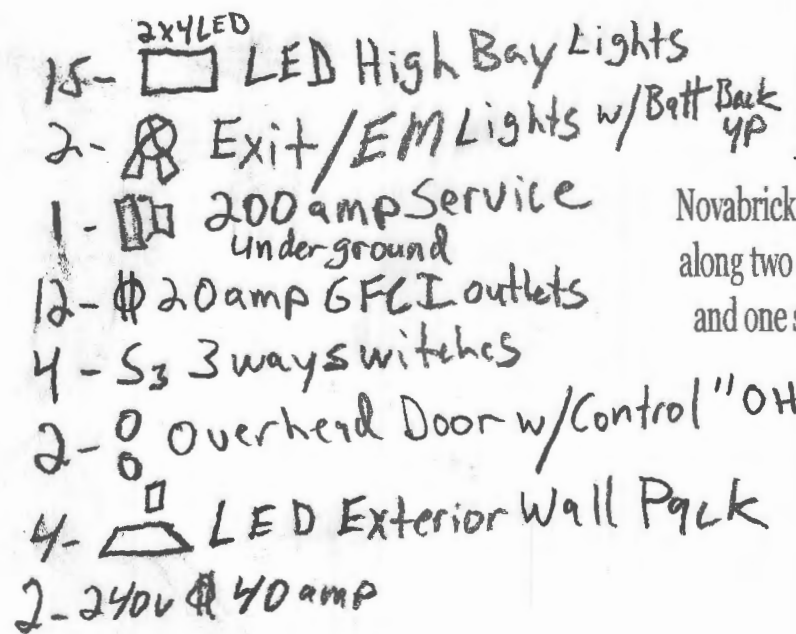 2x4LED
15- LED High Bay Lights
2- Exit/EM Lights w/Batt Back
up
1- 200 amp Service
underground
12- 20 amp GFCI outlets
4- S3 3 way switches
2- Overhead Door w/Control "OH
4- LED Exterior Wall Pack
2-240v 40 amp
Novabrick
along two
and one s